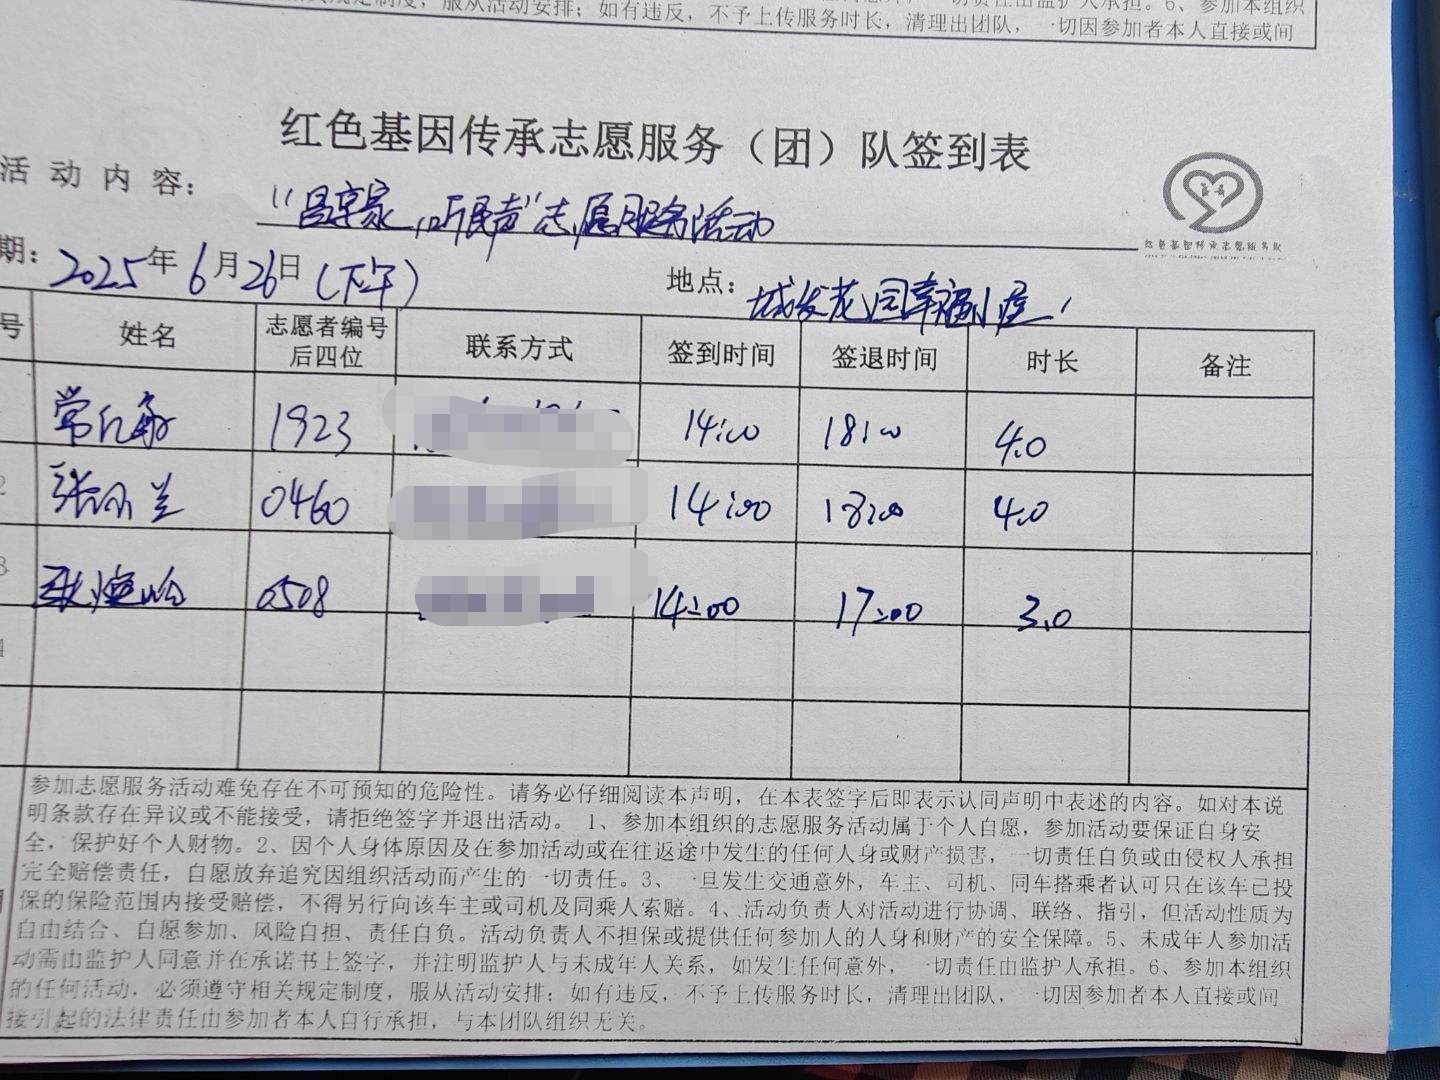 , 服从活动安排；如有违反，不予上传服务时长，清理出团队，一切因参加者本人直接或间
红色基因传承志愿服务（团）队签到表
活动内容：
听民声”志愿服务活动
红色基因传承志愿服务队
期：2025年6月26日(下午)
地点：幸福小屋
号 姓名 志愿者编号后四位 联系方式 签到时间 签退时间 时长 备注
常 1923 14:00 18:00 4.0
2 张 兰 0460 14:00 18:00 4.0
3 0508 14:00 17:00 3.0
4
参加志愿服务活动难免存在不可预知的危险性。请务必仔细阅读本声明，在本表签字后即表示认同声明中表述的内容。如对本说
明条款存在异议或不能接受，请拒绝签字并退出活动。1、参加本组织的志愿服务活动属于个人自愿，参加活动要保证自身安
全，保护好个人财物。2、因个人身体原因及在参加活动或在往返途中发生的任何人身或财产损害，一切责任自负或由侵权人承担
完全赔偿责任，自愿放弃追究因组织活动而产生的一切责任。3、一旦发生交通意外，车主、司机、同车搭乘者认可只在该车已投
保的保险范围内接受赔偿，不得另行向该车主或司机及同乘人索赔。4、活动负责人对活动进行协调、联络、指引，但活动性质为
自由结合、自愿参加、风险自担、责任自负。活动负责人不担保或提供任何参加人的人身和财产的安全保障。5、未成年人参加活
动需由监护人同意并在承诺书上签字，并注明监护人与未成年人关系，如发生任何意外，一切责任由监护人承担。6、参加本组织
的任何活动，必须遵守相关规定制度，服从活动安排；如有违反，不予上传服务时长，清理出团队，一切因参加者本人直接或间
接引起的法律责任由参加者本人自行承担，与本团队组织无关。